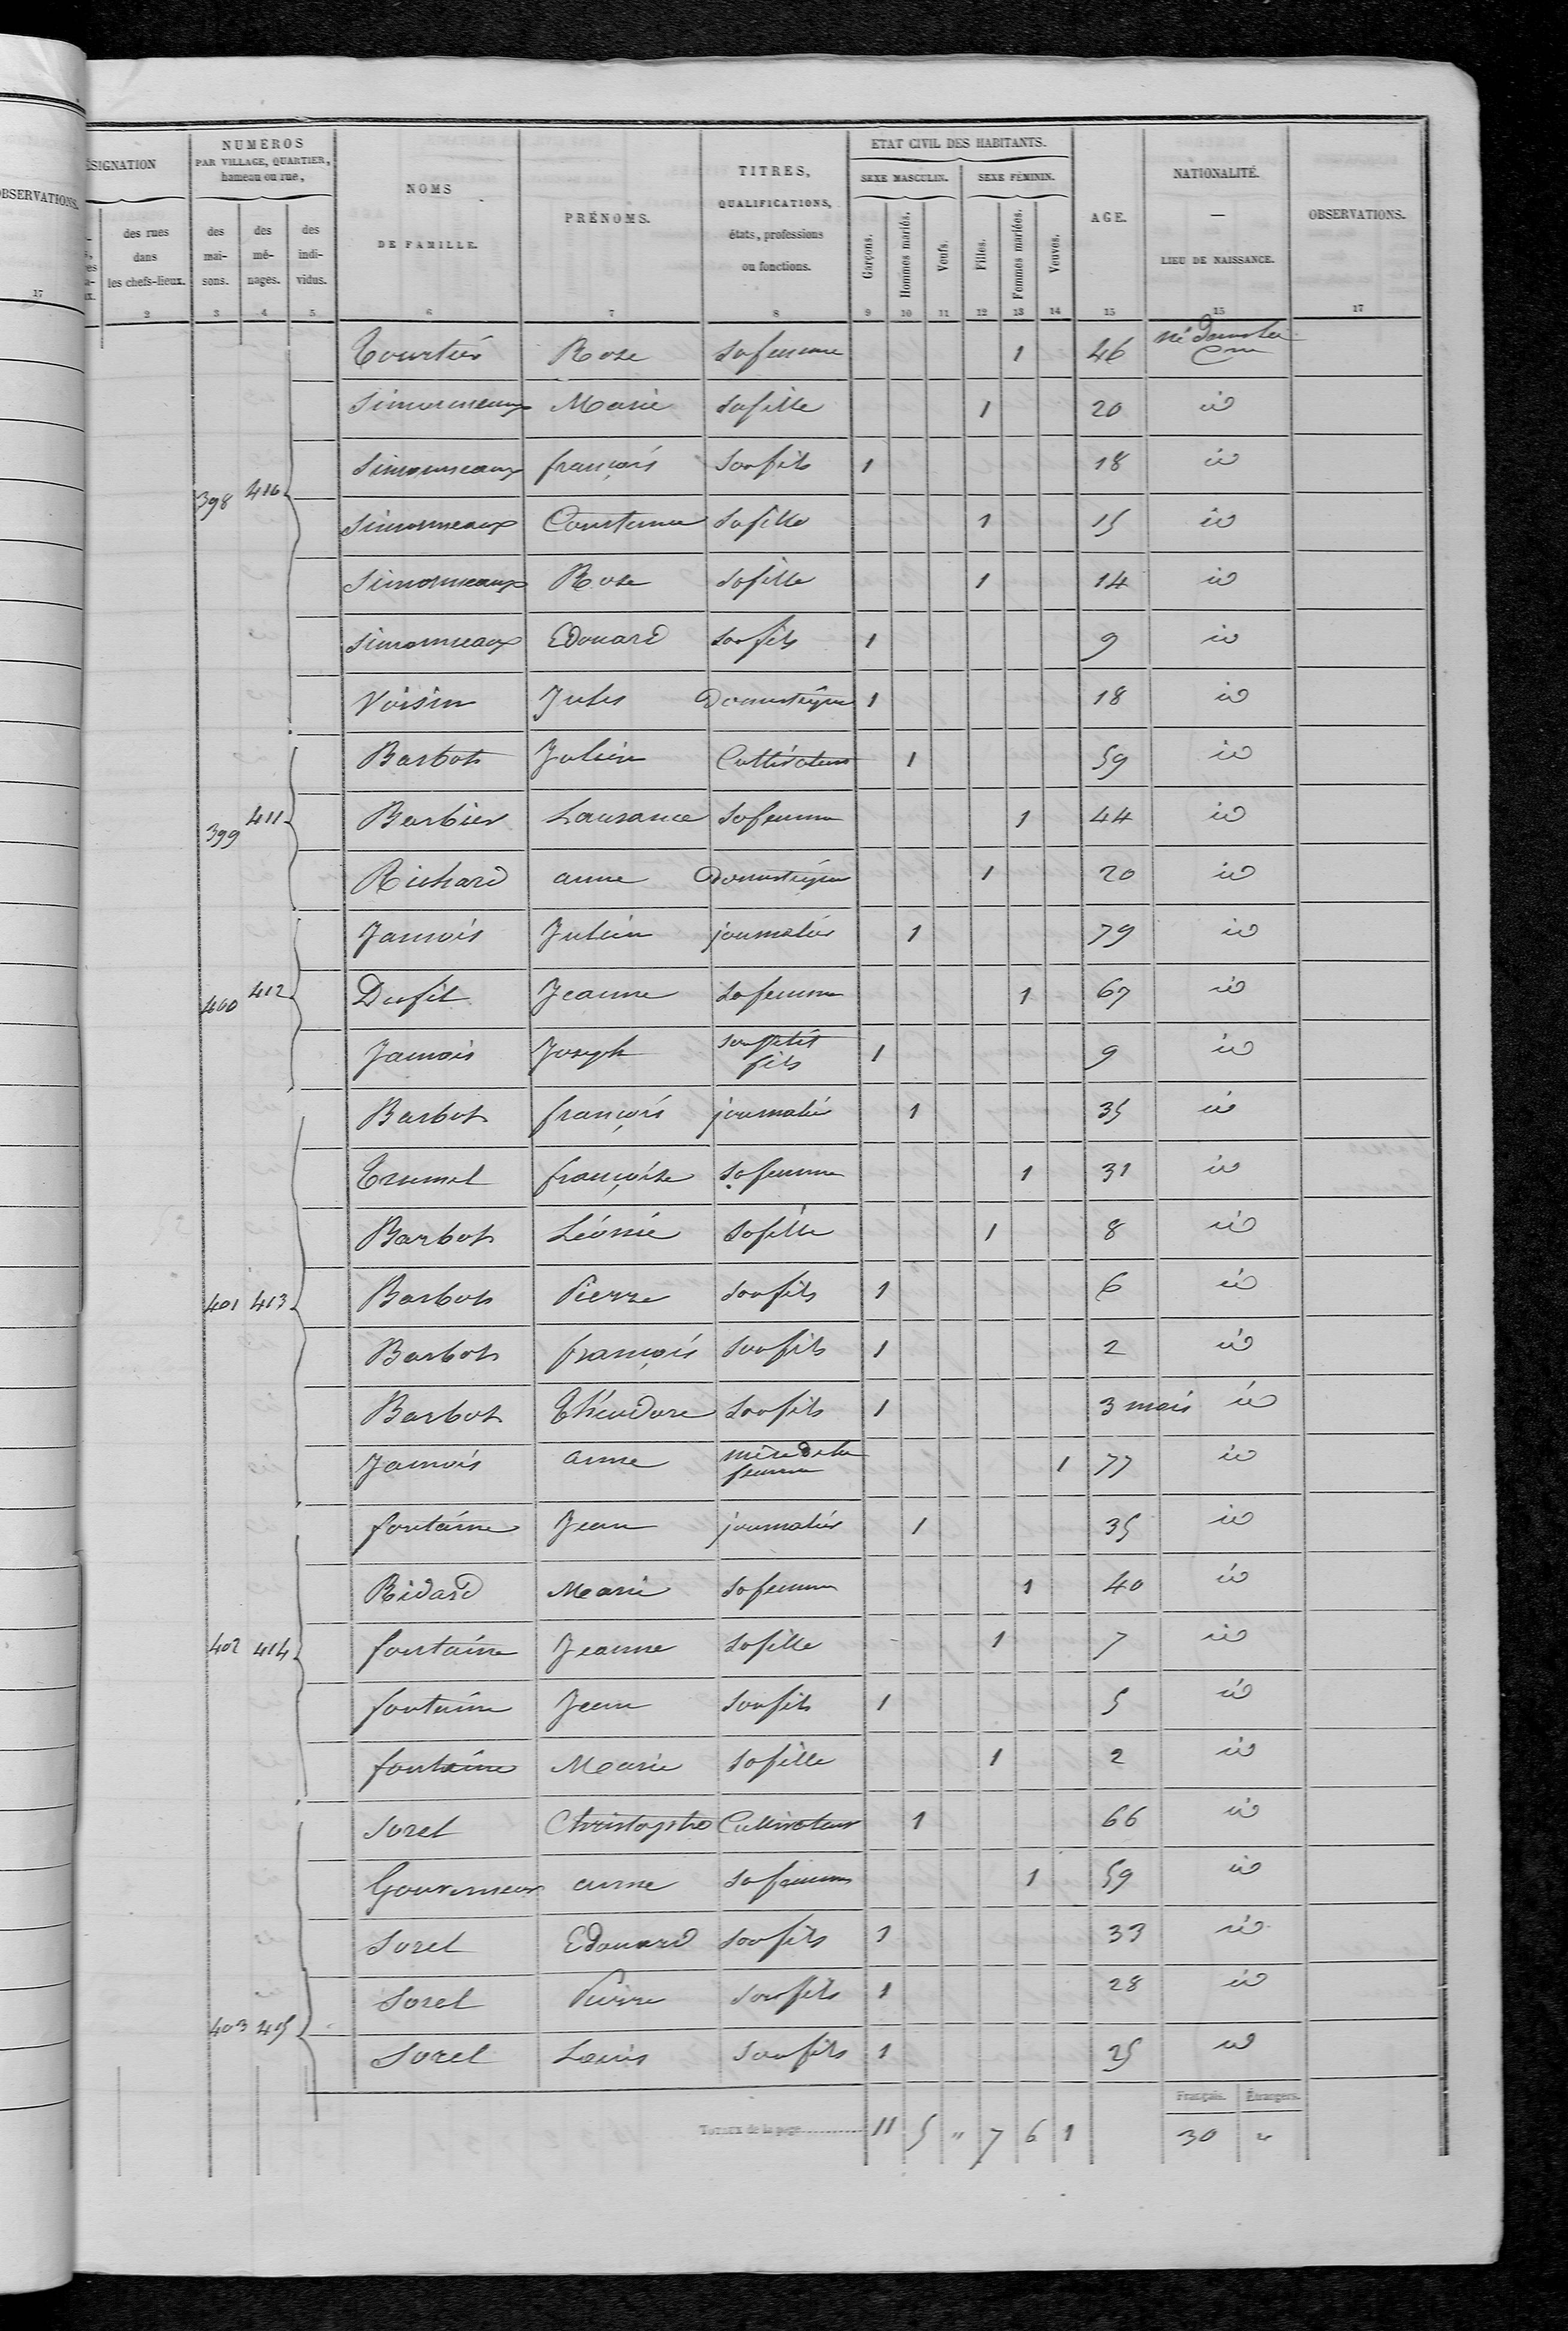 OBSERVATIONS.
17
DÉSIGNATION
des rues
dans
les chefs-lieux.
2
NUMÉROS
PAR VILLAGE, QUARTIER,
hameau ou rue,
des mai-sons.
3
des mé-nages.
4
des indi-vidus.
5
NOMS
DE FAMILLE.
6
PRÉNOMS.
7
TITRES,
QUALIFICATIONS,
états, professions
ou fonctions.
8
ETAT CIVIL DES HABITANTS.
SEXE MASCULIN.
SEXE FÉMININ.
Garçons.
9
Hommes mariés.
10
Veufs.
11
Filles.
12
Femmes mariées.
13
Veuves.
14
AGE.
15
NATIONALITÉ.
—
LIEU DE NAISSANCE.
15
OBSERVATIONS.
17
Tourtier Rose sa femme 1 46 né dans la Cne
Simonneaux Marie sa fille 1 20 id
Simonneaux françois son fils 1 18 id
398 410
Simonneaux Constance sa fille 1 15 id
Simonneaux Rose sa fille 1 14 id
Simonneaux Edouard son fils 1 9 id
Voisin Jules Domestique 1 18 id
Barbot Julien Cultivateur 1 59 id
399 411 Barbier Laurance sa femme 1 44 id
Richard anne Domestique 1 20 id
Jamois Julien journalier 1 79 id
400 412 Dufil Jeanne sa femme 1 67 id
Jamois Joseph son petit fils 1 9 id
Barbot françois journalier 1 35 id
Trumel françoise sa femme 1 31 id
Barbot Léonie sa fille 1 8 id
401 413 Barbot Pierre son fils 1 6 id
Barbot françois son fils 1 2 id
Barbot Théodore son fils 1 3 mois id
Jamois anne mère de la femme 1 77 id
fontaine Jean journalier 1 35 id
Ridard Marie sa femme 1 40 id
402 414 fontaine Jeanne sa fille 1 7 id
fontaine Jean son fils 1 5 id
fontaine Marie sa fille 1 2 id
Sorel Christophe Cultivateur 1 66 id
Gouverneur anne sa femme 1 59 id
Sorel Edouard son fils 1 33 id
Sorel Pierre son fils 1 28 id
403 415
Sorel Louis son fils 1 25 id
Français. Étrangers.
TOTAUX de la page 11 5 " 7 6 1 30 "